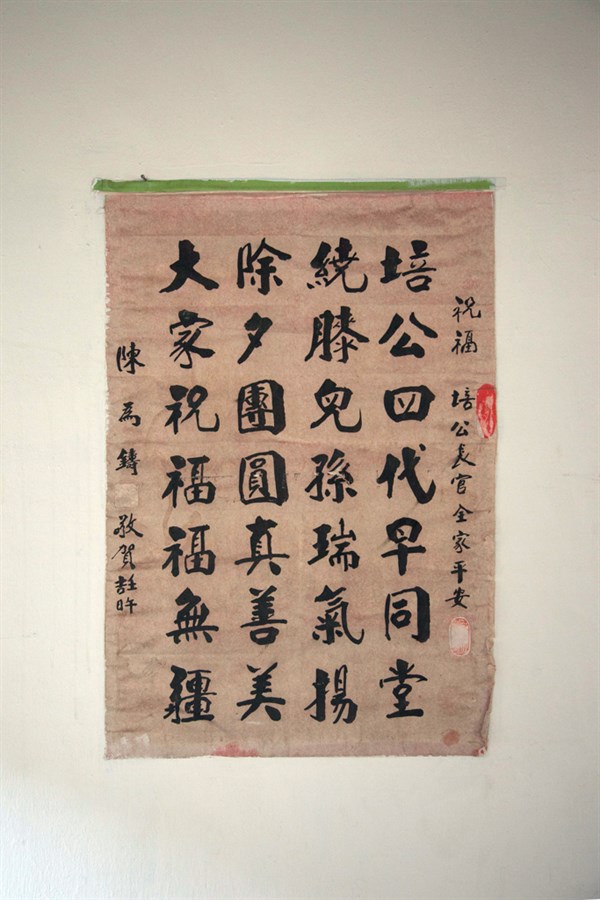 祝福 培公長官全家平安
培公四代早同堂
繞膝兒孫瑞氣揚
除夕團圓真善美
大家祝福福無疆
陳為鑄 敬賀